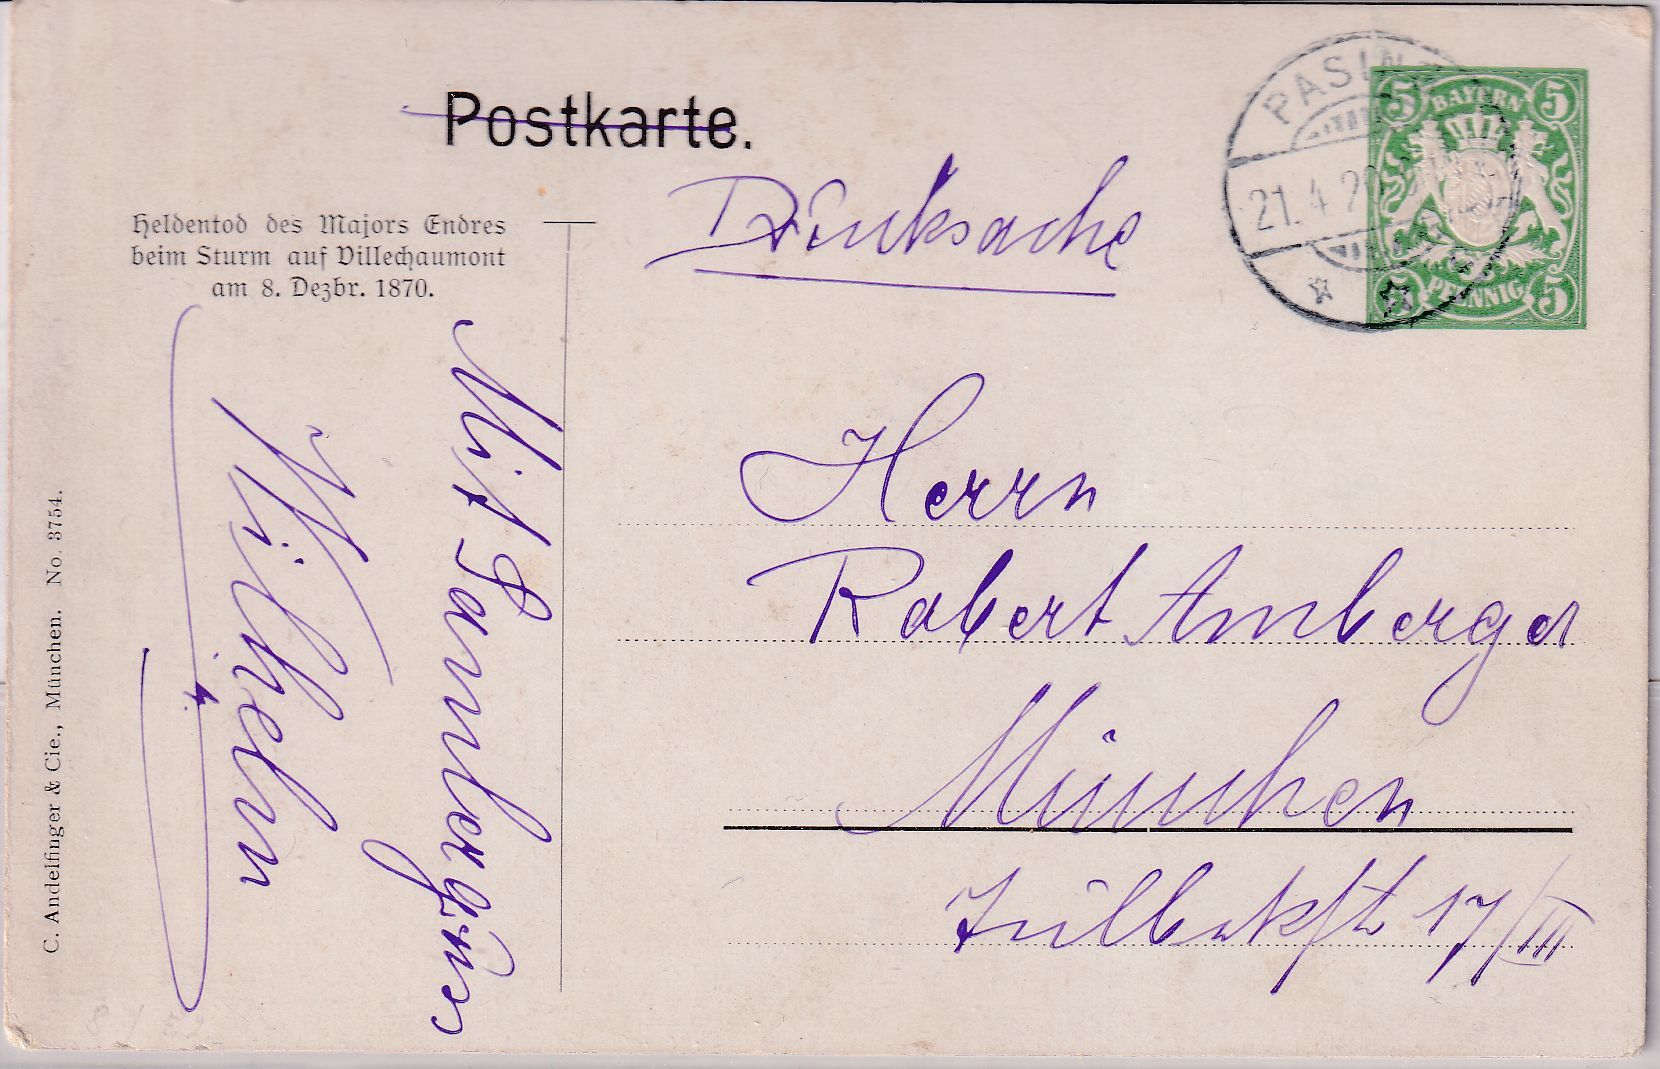 Postkarte.
Heldentod des Majors Endres
beim Sturm auf Villechaumont
am 8. Dezbr. 1870.
Drucksache
PASING
21. 4 20
BAYERN
5 5
PFENNIG
5 5
Herrn
Robert Amberger
München
17/III
Mit
Wilhelm
C. Andelfinger & Cie., München. No. 3754.